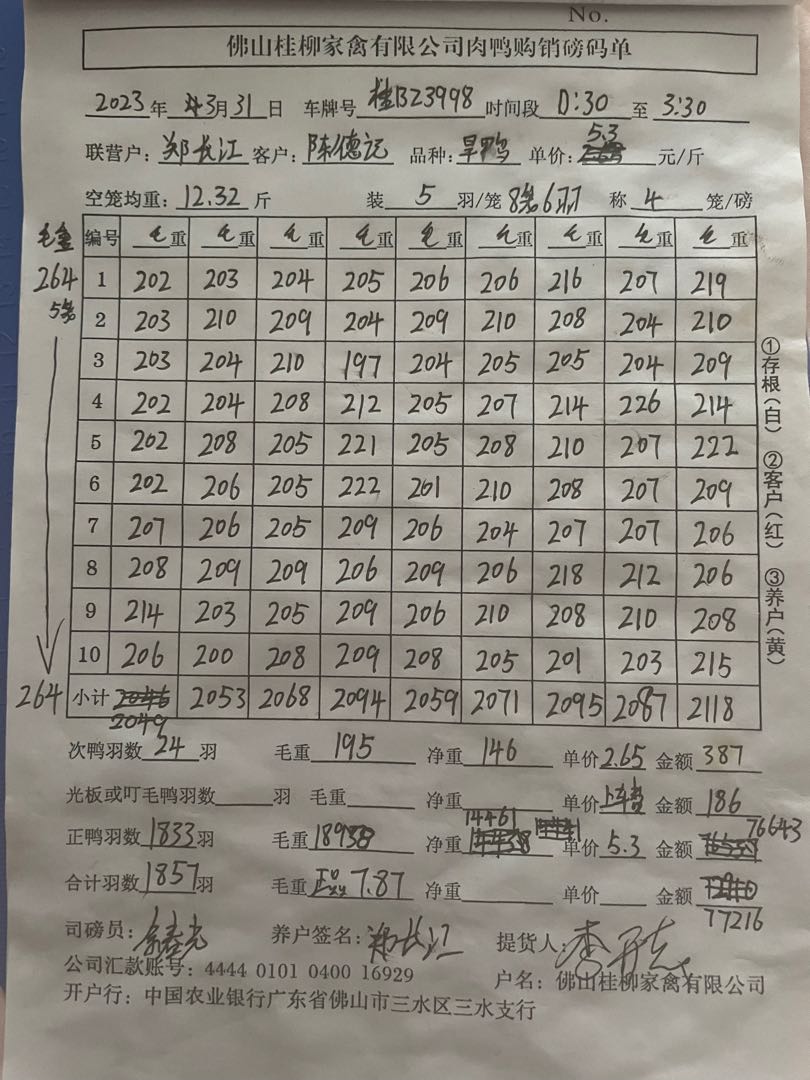 No.
佛山桂柳家禽有限公司肉鸭购销磅码单
2023年 3月31日 车牌号 桂BZ3998 时间段 0:30 至 3:30
联营户：郑长江 客户：陈德记 品种：旱鸭 单价：5.3 元/斤
空笼均重：12.32 斤 装 5 羽/笼 8笼6羽 称 4 笼/磅
毛重 编号 毛重 毛重 毛重 毛重 毛重 毛重 毛重 毛重 毛重
264 1 202 203 204 205 206 206 216 207 219
5笼 2 203 210 209 204 209 210 208 204 210
3 203 204 210 197 204 205 205 204 209
4 202 204 208 212 205 207 214 226 214
5 202 208 205 221 205 208 210 207 222
6 202 206 205 222 201 210 208 207 209
7 207 206 205 209 206 204 207 207 206
8 208 209 209 206 209 206 218 212 206
9 214 203 205 209 206 210 208 210 208
10 206 200 208 209 208 205 201 203 215
264 小计 2046 2053 2068 2094 2059 2071 2095 2087 2118
2049
①存根（白） ②客户（红） ③养户（黄）
次鸭羽数 24 羽 毛重 195 净重 146 单价 2.65 金额 387
光板或叮毛鸭羽数 羽 毛重 净重 单价 金额 186
14461 76643
正鸭羽数 1833 羽 毛重 18958 净重 14438 单价 5.3 金额
合计羽数 1857 羽 毛重 7.87 净重 单价 金额
77216
司磅员： 养户签名：郑长江 提货人：
公司汇款账号：4444 0101 0400 16929 户名：佛山桂柳家禽有限公司
开户行：中国农业银行广东省佛山市三水区三水支行